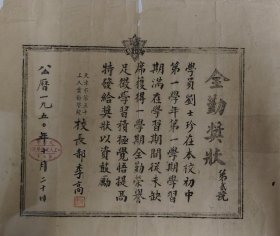 全勤獎狀
第 號
學員劉士珍在本校初中
第一學年第一學期學習
期滿在學習期間從未缺
席獲得一學期全勤榮譽
足徵學習積極覺悟提高
特發給獎狀以資鼓勵
校長郝李高
公曆一九五〇年 月二十日